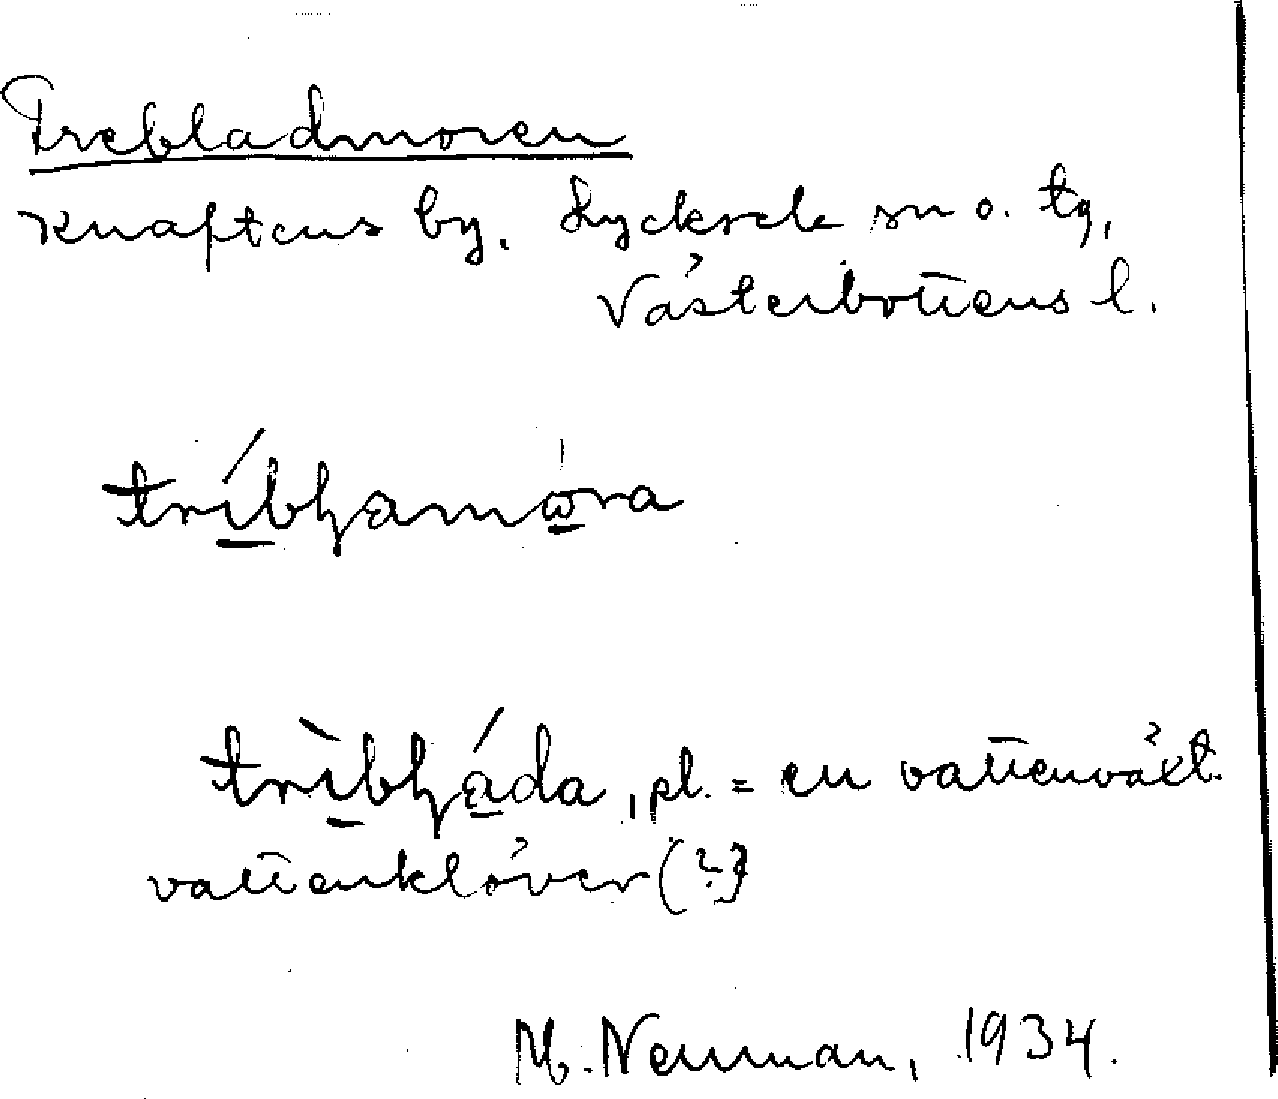 Trebladmoren
Knaftens by. Lycksele sn o. tg,
Västerbottens l.
tríbḷamåra
trìbḷáda, pl. = en vattenväxt.
vattenklöver (?)
M. Neuman, 1934.